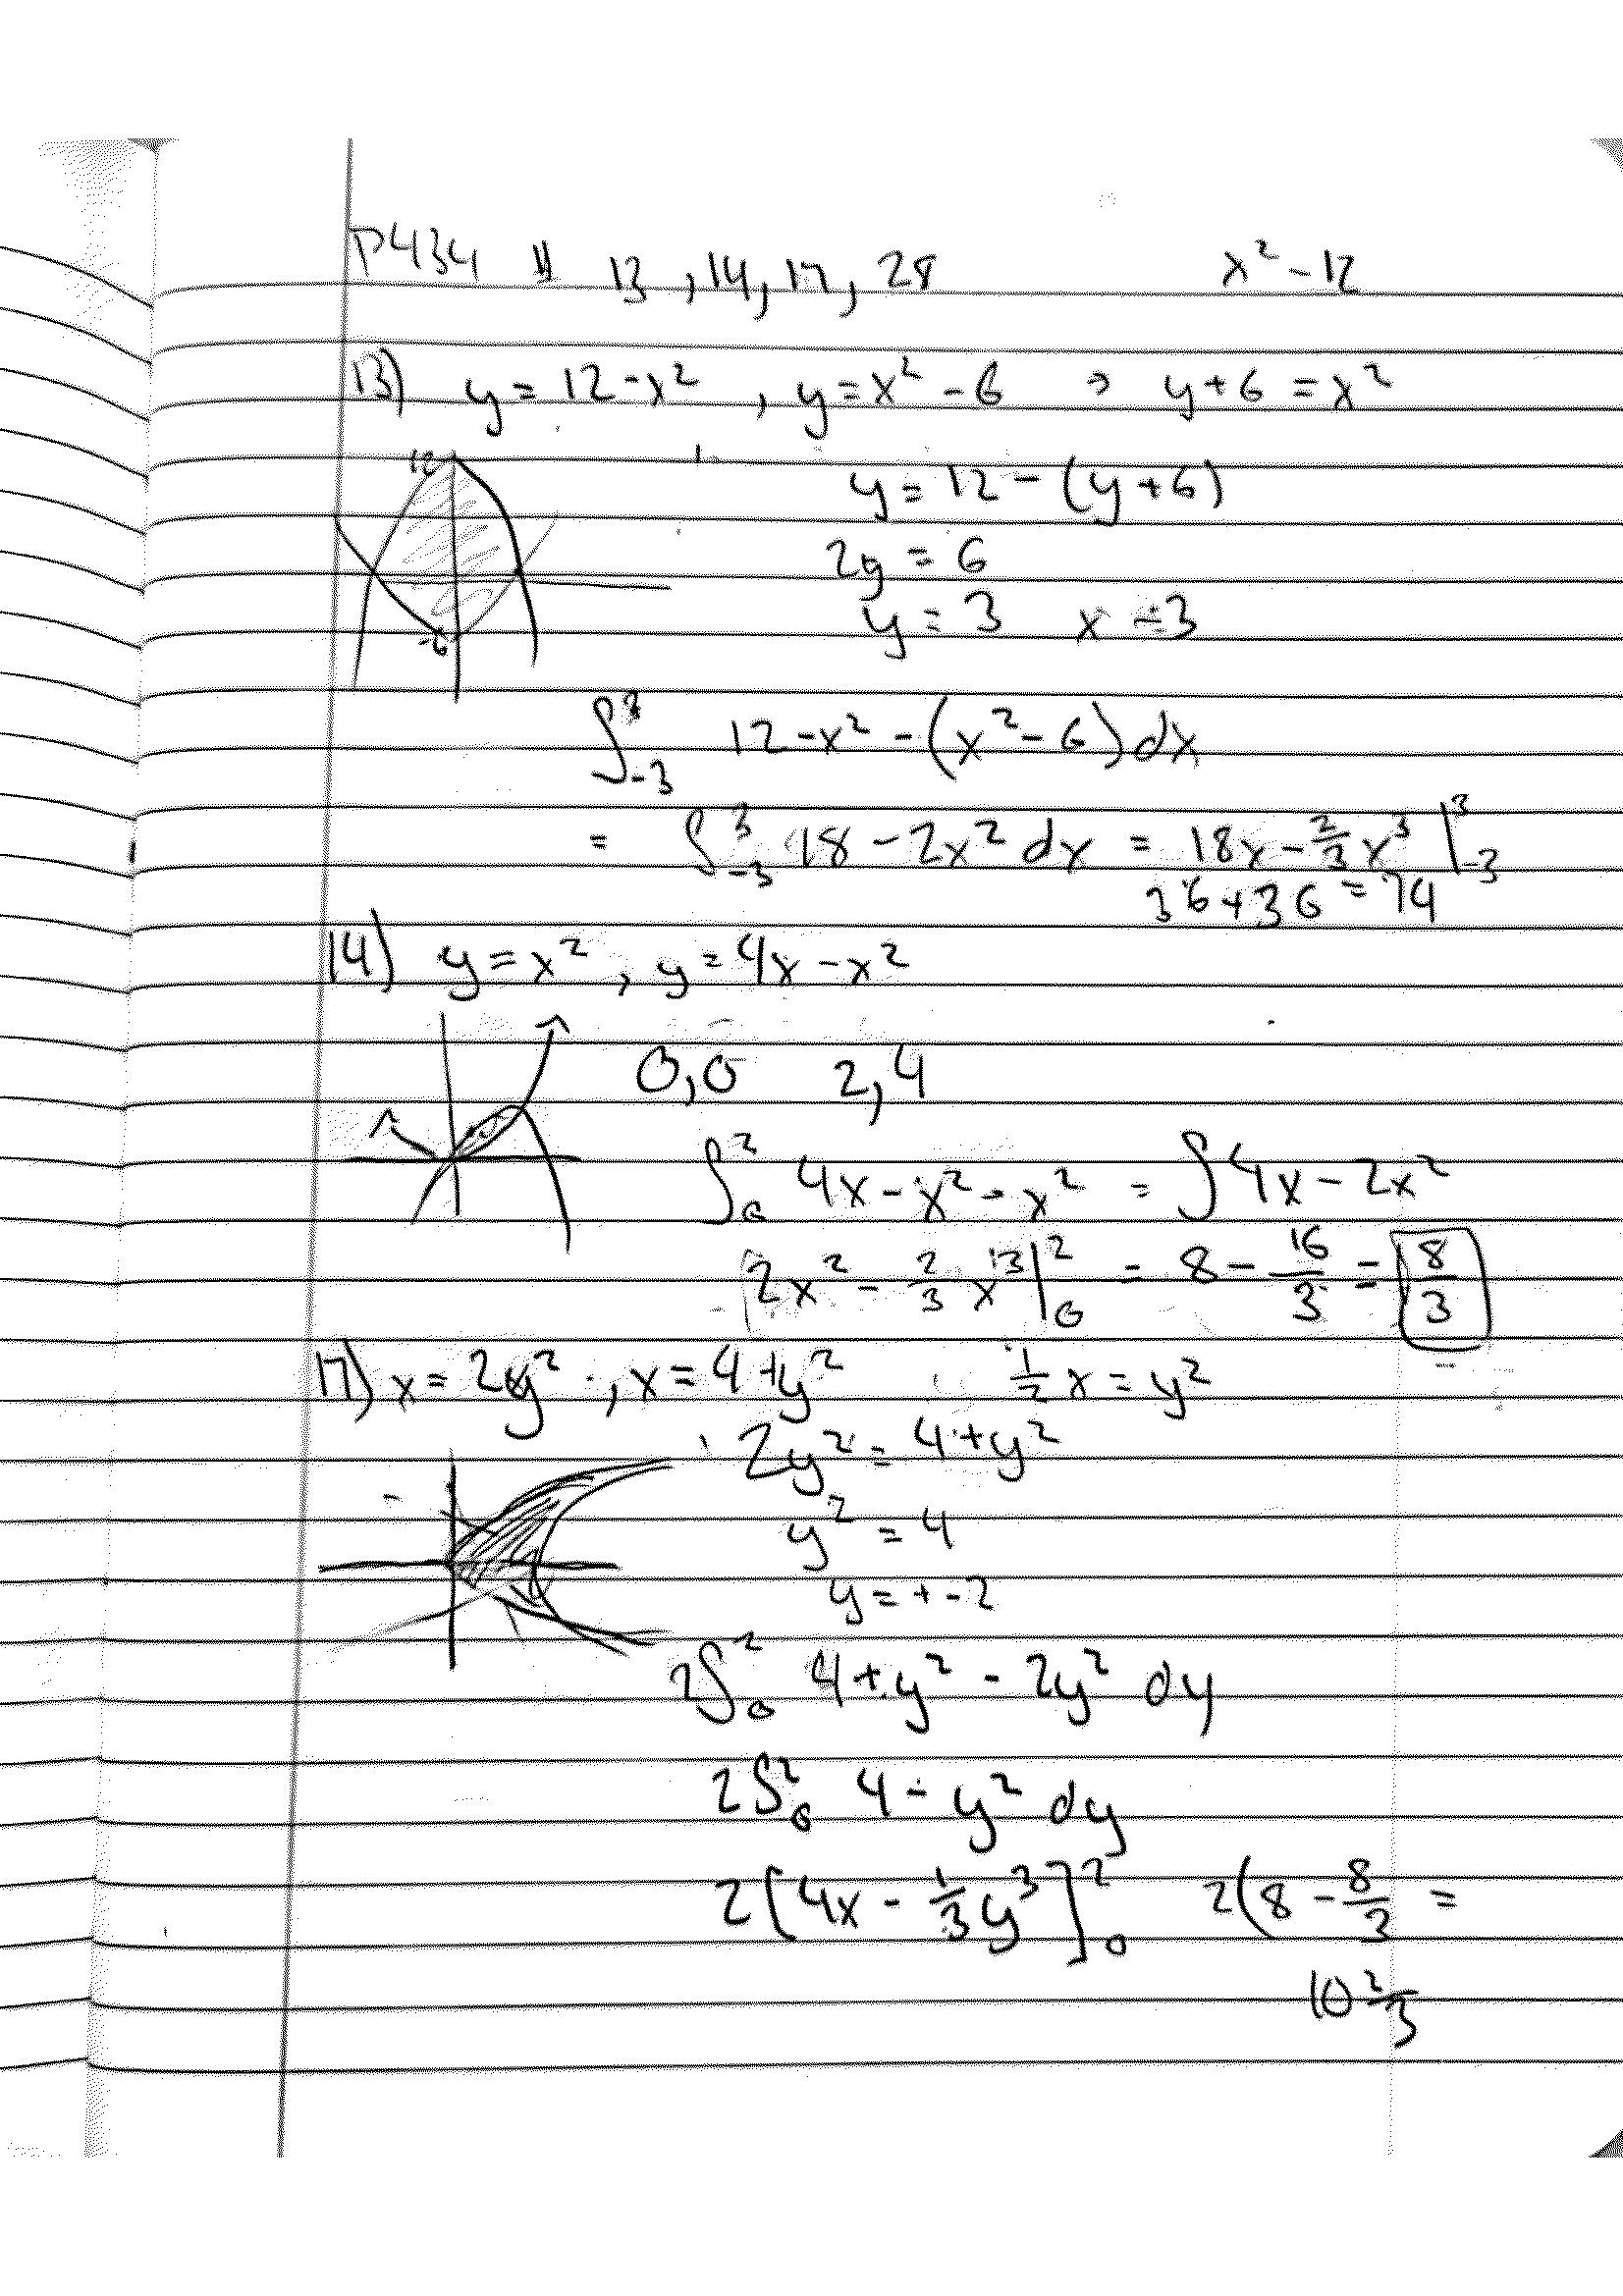 P434 # 13, 14, 17, 28 x² - 12
13) y = 12 - x² , y = x² - 6 → y + 6 = x²
12
y = 12 - (y + 6)
2y = 6
y = 3 x = ±3
-6
∫₋₃³ 12 - x² - (x² - 6) dx
= ∫₋₃³ 18 - 2x² dx = 18x - 2/3 x³ |₋₃³
36 + 36 = 74
14) y = x² , y = 4x - x²
0,0 2,4
∫₀² 4x - x² - x² = ∫ 4x - 2x²
2x² - 2/3 x³ |₀² = 8 - 16/3 = 8/3
17) x = 2y² , x = 4 + y² 1/2 x = y²
2y² = 4 + y²
y² = 4
y = + - 2
2∫₀² 4 + y² - 2y² dy
2∫₀² 4 - y² dy
2[4x - 1/3 y³]₀² 2(8 - 8/3 =
10 2/3